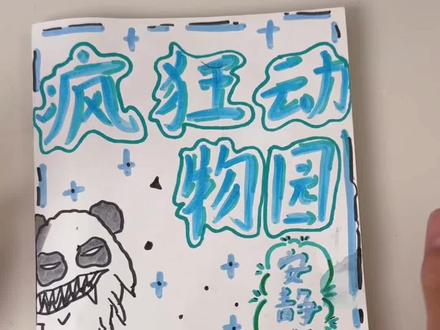 疯狂动
物园
安静